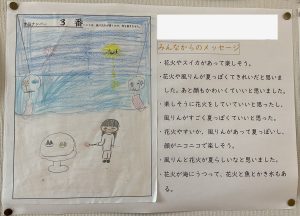 作品ナンバー 3番
みんなからのメッセージ
・花火やスイカがあって楽しそう。
・花火や風りんが夏っぽくてきれいだと思いま
した。あと顔もかわいくていいと思いました。
・楽しそうに花火をしていていいと思ったし、
風りんがすごく夏っぽくていいと思った。
・花火やすいか、風りんがあって夏っぽいし、
顔がニコニコで楽しそう。
・風りんと花火が夏らしいなと思いました。
・花火が海にうつって、花火と魚とかき氷もあ
る。